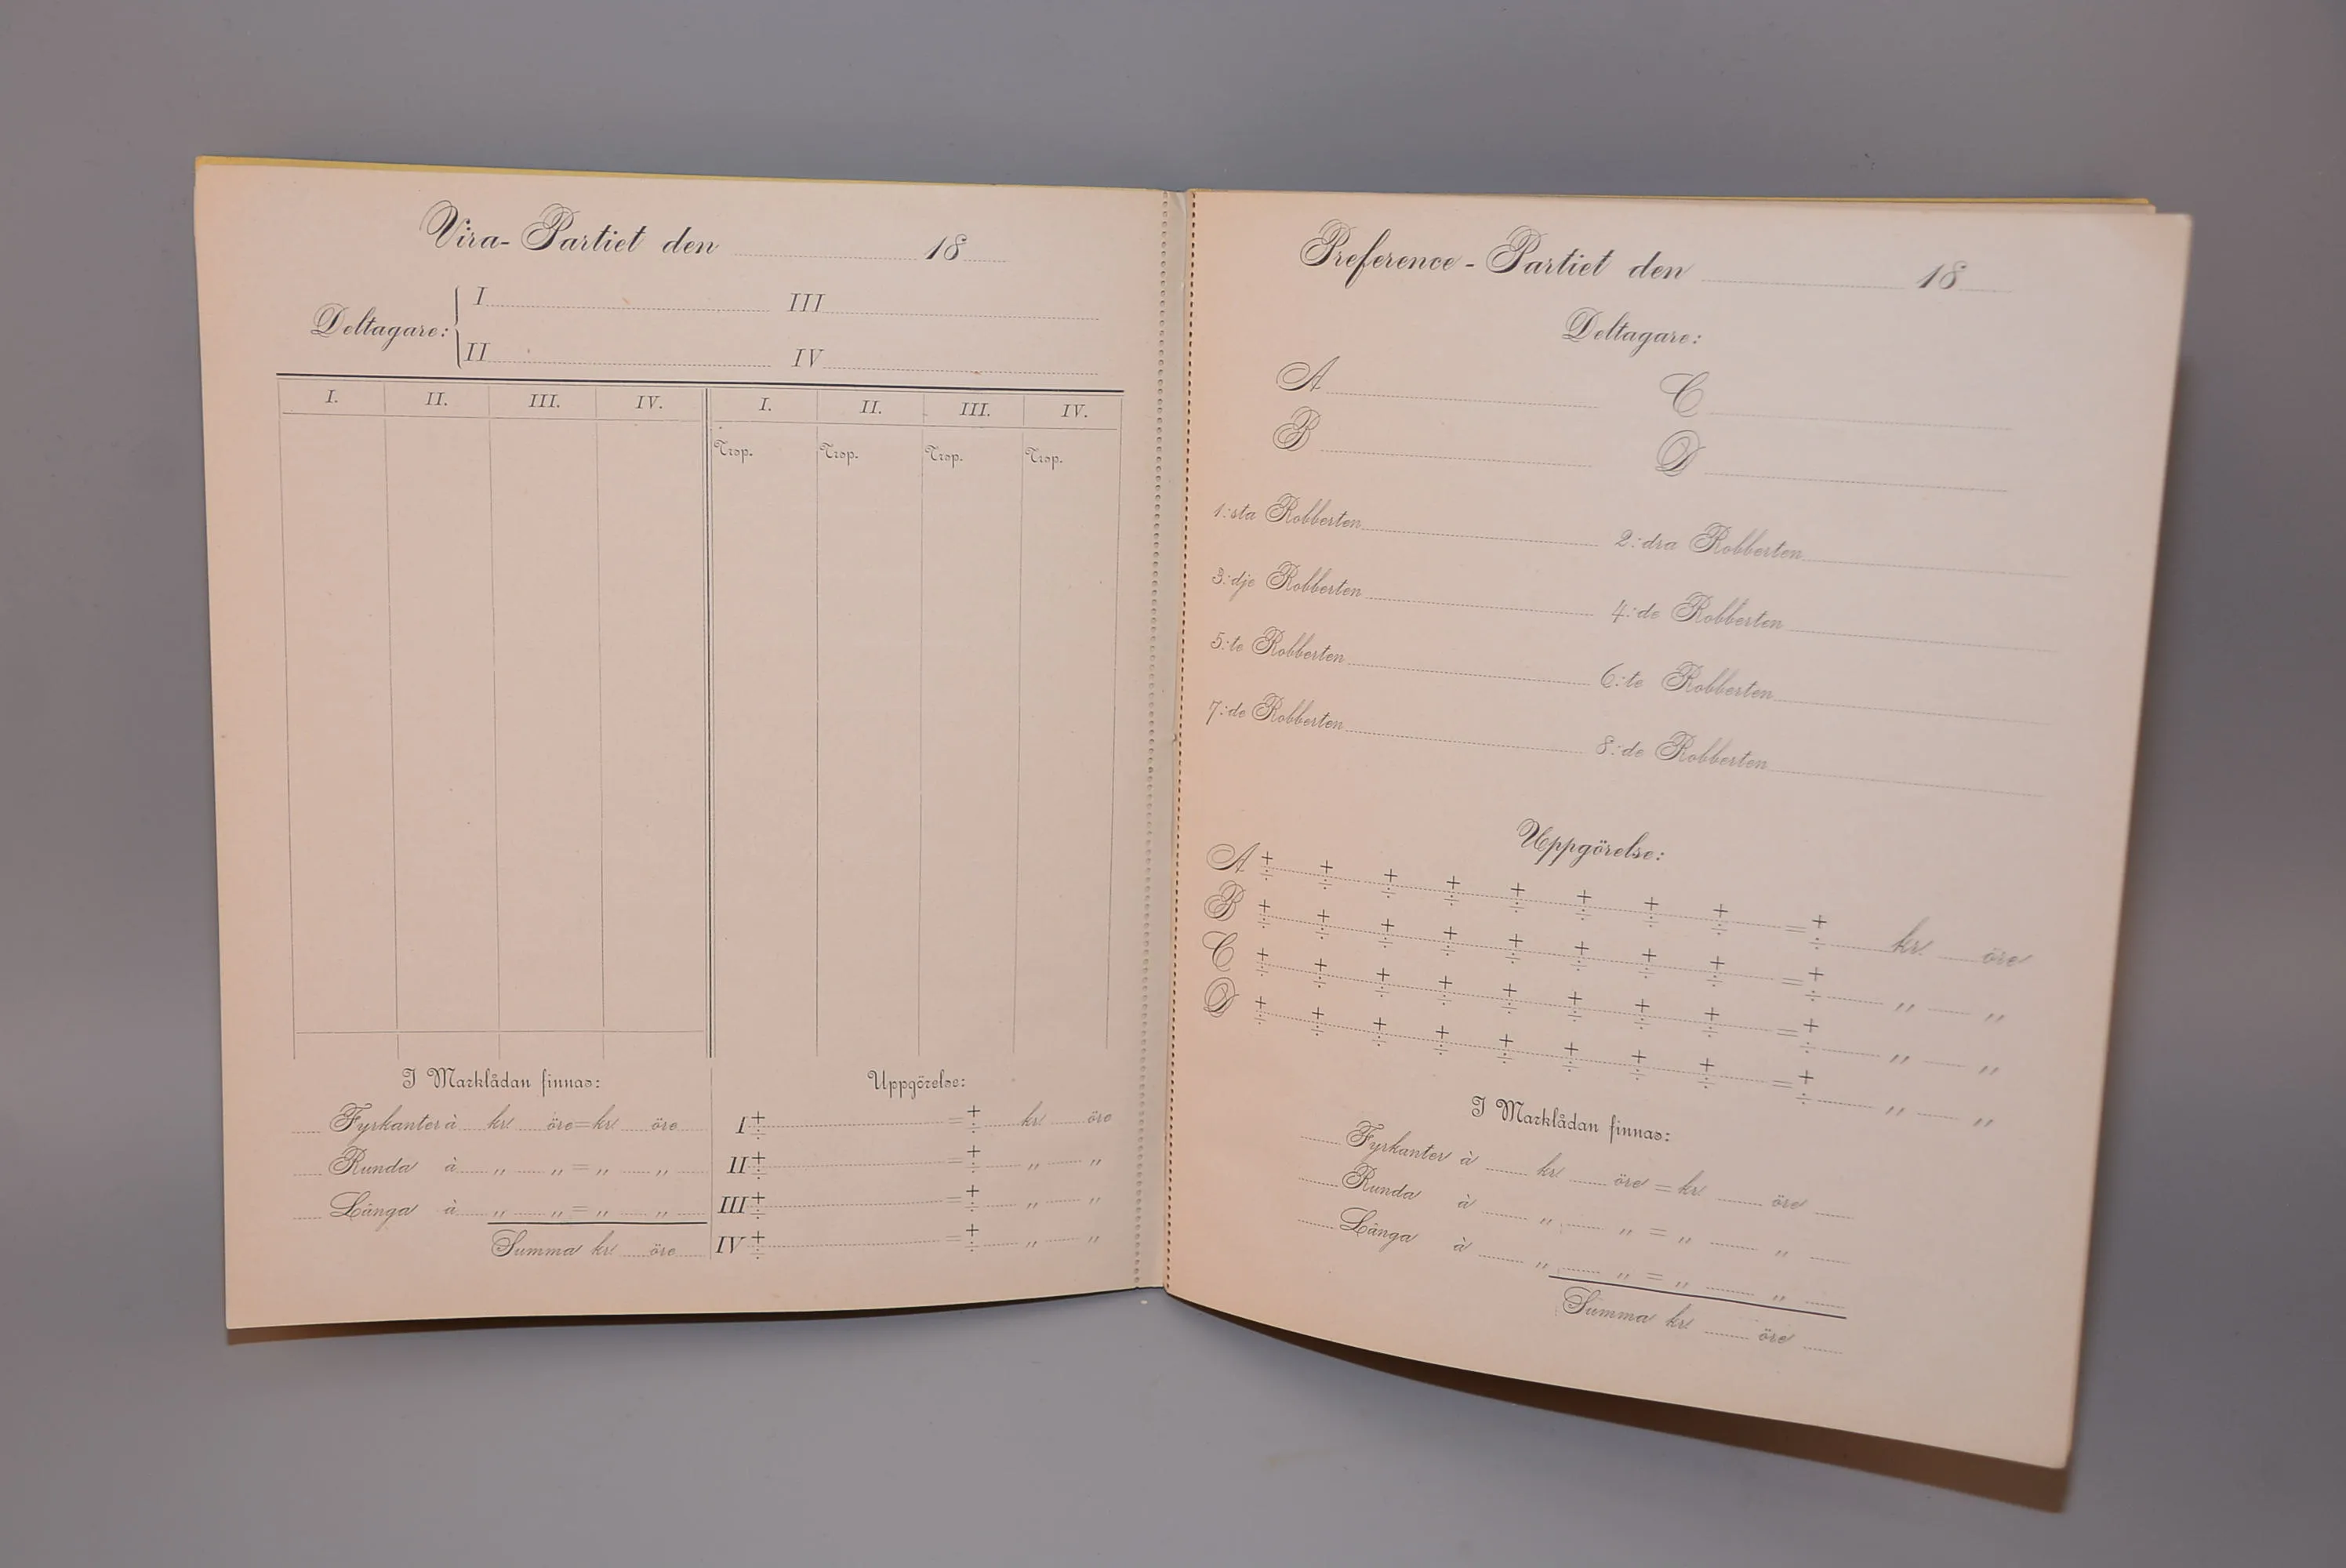 Vira-Partiet den 18
Deltagare: I III
II IV
I. II. III. IV. I. II. III. IV.
Trsp. Trsp. Trsp. Trsp.
I Marklådan finnas:
Fyrkanter à kr. öre = kr. öre
Runda à „ „ = „ „
Långa à „ „ = „ „
Summa kr. öre
Uppgörelse:
I + ÷ = + ÷ kr. öre
II + ÷ = + ÷ „ „
III + ÷ = + ÷ „ „
IV + ÷ = + ÷ „ „
Preference-Partiet den 18
Deltagare:
A C
B D
1:sta Robberten 2:dra Robberten
3:dje Robberten 4:de Robberten
5:te Robberten 6:te Robberten
7:de Robberten 8:de Robberten
Uppgörelse:
A + ÷ + ÷ + ÷ + ÷ + ÷ + ÷ + ÷ + ÷ = + ÷ kr. öre
B + ÷ + ÷ + ÷ + ÷ + ÷ + ÷ + ÷ + ÷ = + ÷ „ „
C + ÷ + ÷ + ÷ + ÷ + ÷ + ÷ + ÷ + ÷ = + ÷ „ „
D + ÷ + ÷ + ÷ + ÷ + ÷ + ÷ + ÷ + ÷ = + ÷ „ „
I Marklådan finnas:
Fyrkanter à kr. öre = kr. öre
Runda à „ „ = „ „
Långa à „ „ = „ „
Summa kr. öre